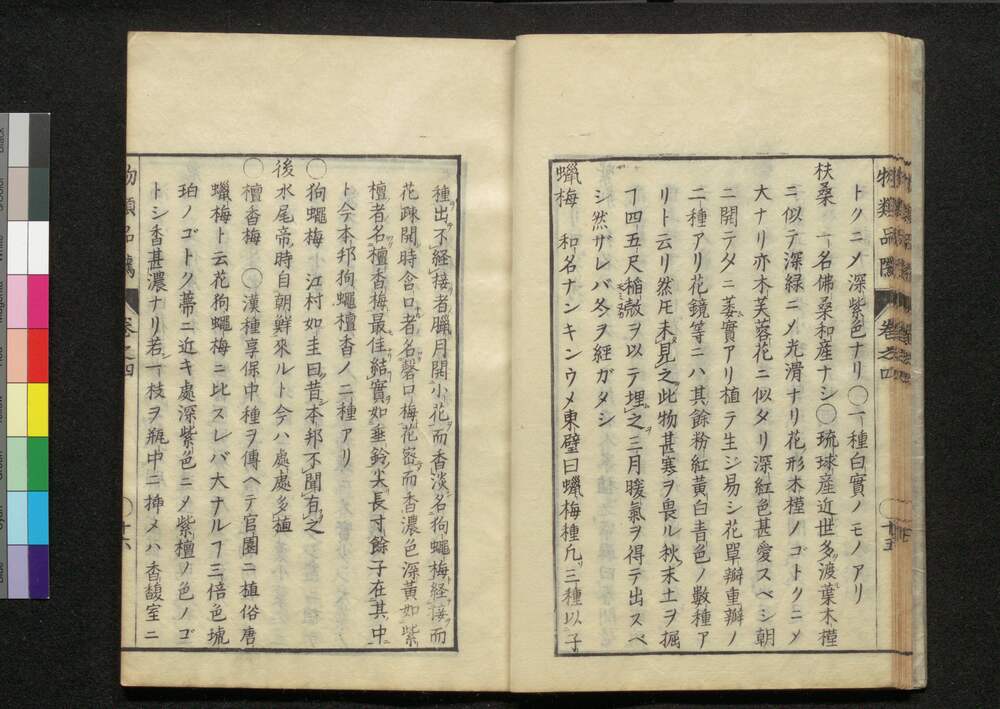 物類品隲 卷之四
トクニメ深紫色ナリ〇一種白實ノモノアリ
扶桑 一名佛桑和産ナシ〇琉球産近世多渡葉木槿
ニ似テ深緑ニメ光滑ナリ花形木槿ノゴトクニメ
大ナリ亦木芙蓉花ニ似タリ深紅色甚愛スベシ朝
ニ開テタニ萎實アリ植テ生ジ易シ花單瓣重瓣ノ
二種アリ花鏡等ニハ其餘粉紅黃白青色ノ數種ア
リト云リ然𪜈未見之此物甚寒ヲ畏ル秋末土ヲ掘
ヿ四五尺稲殼ヲ以テ埋之三月暖氣ヲ得テ出スベ
シ然ザレバ冬ヲ経ガタシ
蠟梅 和名ナンキンウメ東璧曰蠟梅種凡三種以子
種出不経接者臘月開小花而香淡名狗蠅梅経接而
花疎開時含口者名磬口梅花宻而香濃色深黃如紫
檀者名檀香梅最佳結實如垂鈴尖長寸餘子在其中
ト今本邦狗蠅檀香ノ二種アリ
〇狗蠅梅 江村如圭曰昔本邦不聞有之
後水尾帝時自朝鮮來ルト今ハ處處多植
〇檀香梅 〇漢種享保中種ヲ傳ヘテ官園ニ植俗唐
蠟梅ト云花狗蠅梅ニ比スレバ大ナルヿ三倍色琥
珀ノゴトク蔕ニ近キ處深紫色ニメ紫檀ノ色ノゴ
トシ香甚濃ナリ若一枝ヲ瓶中ニ挿メハ香馥室ニ
卷之四
十六